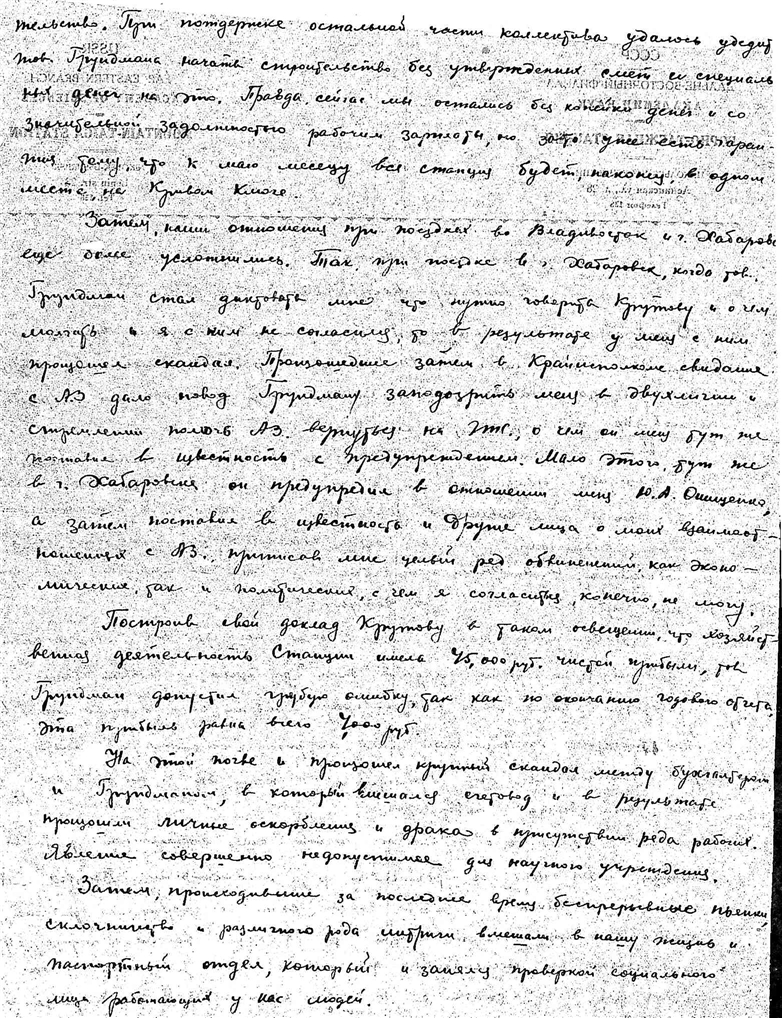 тельство. При поддержке остальной части коллектива удалось убедит
тов. Грундмана начать строительство без утвержденных смет и специаль
ных денег на это. Правда, сейчас мы остались без копейки денег и со
значительной задолжностью рабочим зарплаты, но зато уже есть гаран-
тия тому, что к маю месецу вся станция будет наконец, в одном
месте на Кривом Ключе.
Затем, наши отношения при поездках во Владивосток и г. Хабаровс
еще более усложнились. Так, при поездке в г. Хабаровск, когда тов.
Грундман стал диктовать мне что нужно говорить Крутову и о чем
молчать и я с ним не согласился, то в результате у меня с ним
произошел скандал. Происшедшее затем в Крайисполкоме свидание
с АЗ дало повод Грундману заподозрить меня в двухличии и
стремлении помочь АЗ. вернуться на ГТС., о чем он меня тут же
поставил в известность с предупреждением. Мало этого, тут же
в г. Хабаровске он предупредил в отношении меня Ю.А. Онищенко,
а затем поставил в известность и другие лица о моих взаимоот-
ношениях с АЗ., приписав мне целый ряд обвинений, как эконо-
мические, так и политические, с чем я согласиться, конечно, не могу.
Построив свой доклад Крутову в таком освещении, что хозяйст-
венная деятельность Станции имела 45,000 руб. чистой прибыли, тов
Грундман допустил грубую ошибку, так как по окончанию годового отчета
эта прибыль равна всего 7,000 руб.
На этой почве и произошел крупный скандал между бухгалтером
и Грундманом, в который вмешался счетовод и в результате
прошли личные оскорбления и драка в присутствии ряда рабочих.
Явление совершенно недопустимое для научного учреждения.
Затем, происходившие за последнее время беспрерывные пьянки,
склочничество и различного рода интриги вмешали в нашу жизнь и
паспортный отдел, который и занялся проверкой социального
лица работающих у нас людей.